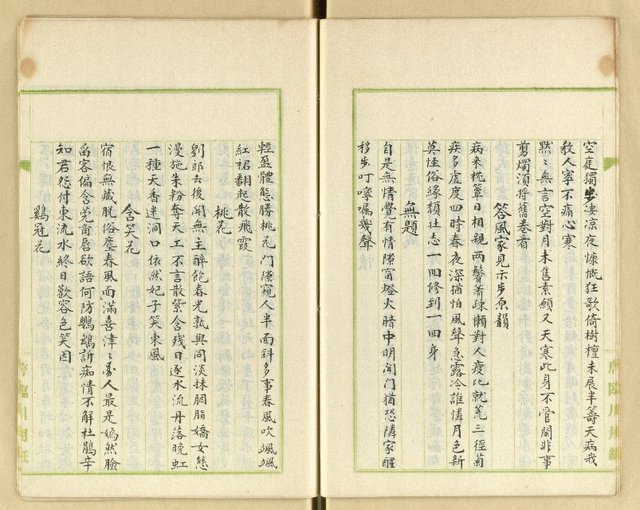 空庭獨步淒涼夜慷慨狂歌倚樹檀未展半籌天病我
教人寧不痛心寒
默々無言空對月未售素願又天寒此身不管閒非事
剪燭須將舊卷看
答風家見示步原韻
病來枕簟日相親兩鬢蕭疎懶對人瘦比就荒三徑菊
疾多虛度四時春夜深猶怕風聲急露冷誰憐月色新
莫怪俗緣頹壯志一回修到一回身
無題
自是無情覺有情隣窗燈火暗中明閉門猶恐隣家醒
移步叮嚀囑幾聲
輕盈體態勝桃花門隙窺人半面斜多事春風吹颯颯
紅裙翻起散飛霞
桃花
劉郎去後開無主醉飽春光孰與同淡抹胭脂嬌女態
漫施朱粉奪天工不言散紫含殘日逐水流丹落晚虹
一種天香迷洞口依然妃子笑東風
含笑花
宿恨無藏脫俗塵春風面滿喜津々美人最是嫣然臉
留客偏含党甬唇欲語何防鸚鵡訴痴情不解杜鵑辛
知君怨付東流水終日歡容色笑因
鷄冠花